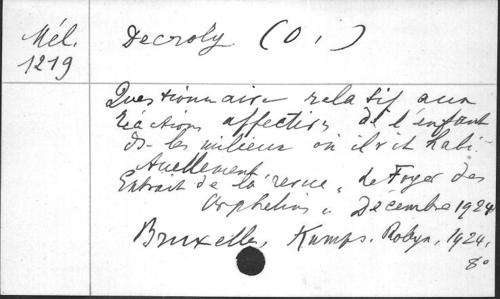 Mél.
1219
Decroly (O.)
Questionnaire relatif aux
réactions affectives de l'enfant
ds les milieux où il vit habi-
tuellement
Extrait de la revue "Le Foyer des
Orphelins" Décembre 1924
Bruxelles, Kumps-Robyn, 1924.
8°